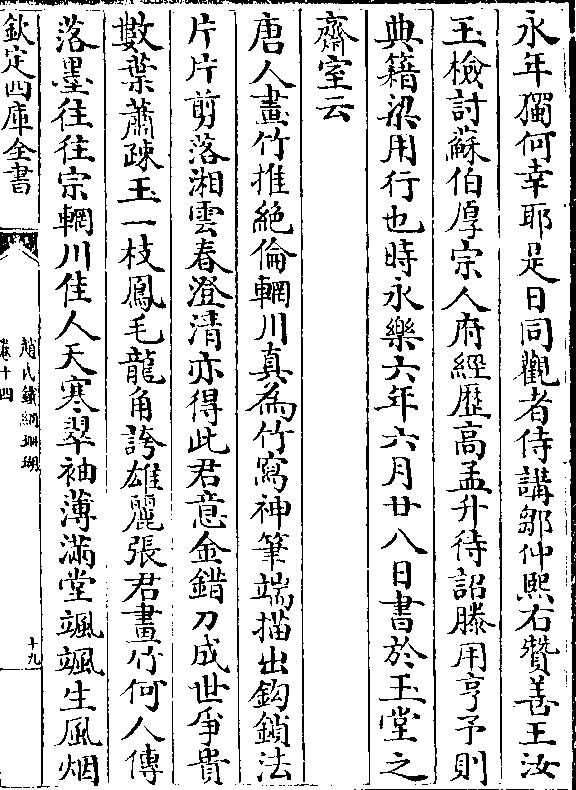 永年獨何幸耶是日同觀者侍講鄒仲熙右贊善王汝
玉檢討蘇伯厚宗人府經歷高孟升待詔滕用亨予則
典籍梁用行也時永樂六年六月廿八日書於玉堂之
齋室云
唐人畫竹推絶倫輞川真為竹寫神筆端描出鈎鎖法
片片剪落湘雲春澄清亦得此君意金錯刀成世爭貴
數葉蕭疎玉一枝鳳毛龍角誇雄麗張君畫竹何人傳
落墨往往宗輞川佳人天寒翠袖薄滿堂颯颯生風烟
欽定四庫全書
趙氏鐵網珊瑚
卷十四
十九